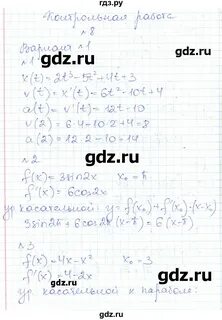 гдз.ру
Контрольная работа
№8
Вариант №1
№1
x(t) = 2t³ - 5t² + 4t + 3
v(t) = x'(t) = 6t² - 10t + 4
a(t) = v'(t) = 12t - 10
v(2) = 6·4 - 10·2 + 4 = 8
a(2) = 12·2 - 10 = 14
№2
f(x) = 3sin2x x₀ = π
f'(x) = 6cos2x
ур касательной: y = f(x₀) + f'(x₀)·(x-x₀)
№3
f(x) = 4x - x² x₀ = 3
f'(x) = 4 - 2x
ур касательной к параболе: